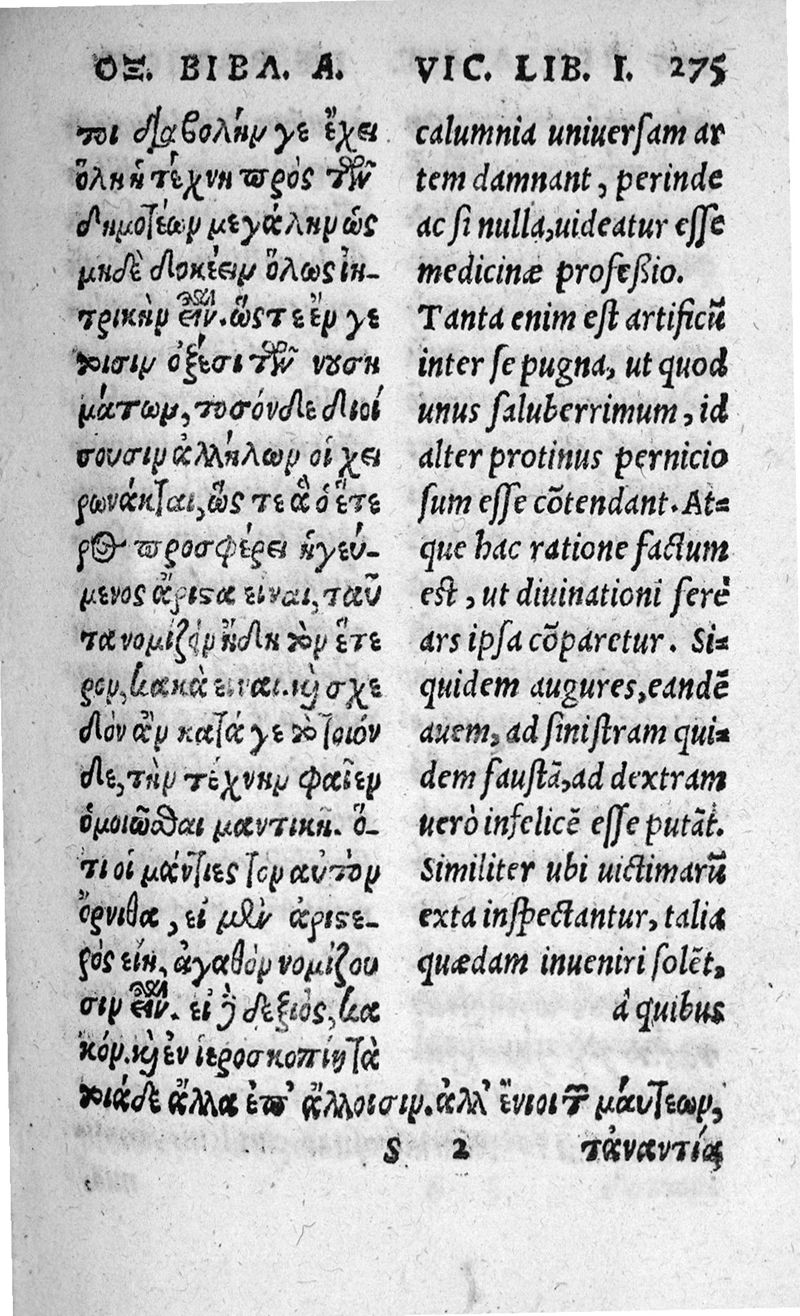 ΟΞ. ΒΙΒΛ. Α.
τοι διαβολήν γε ἔχει
ὅλη ἡ τέχνη πρὸς τῶν
δημοτέων μεγάλην ὡς
μηδὲ δοκέειν ὅλως ἰη-
τρικὴν εἶναι. ὥς τε ἔν γε
τοισιν ὀξέσι τῶν νουση
μάτων, τοσόνδε διοί
σουσιν ἀλλήλων οἱ χει
ρωνάκται, ὥς τε ἃ ὁ ἕτε
ρος προσφέρει ἡγεύ-
μενος ἄριστα εἶναι, ταῦ
τα νομίζειν ἤδη τὸν ἕτε
ρον, κακὰ εἶναι. καὶ σχε
δὸν ἂν κατά γε τὸ τοιόν
δε, τὴν τέχνην φαῖεν
ὁμοιῶσθαι μαντικῇ. ὅ-
τι οἱ μάντιες τον αὐτὸν
ὄρνιθα, εἰ μὲν ἀριστε-
ρὸς εἴη, ἀγαθὸν νομίζου
σιν εἶναι. εἰ δὲ δεξιὸς, κα
κόν. καὶ ἐν ἱεροσκοπίῃ τὰ
τοιάδε ἄλλα ἐπ' ἄλλοισιν. ἀλλ' ἔνιοι τῶν μάντεων,
VIC. LIB. I. 275
calumnia uniuersam ar
tem damnant, perinde
ac si nulla, uideatur esse
medicinæ professio.
Tanta enim est artificũ
inter se pugna, ut quod
unus saluberrimum, id
alter protinus pernicio
sum esse cõtendant. At-
que hac ratione factum
est, ut diuinationi ferè
ars ipsa cõparetur. Si-
quidem augures, eandẽ
auem, ad sinistram qui-
dem faustã, ad dextram
uerò infelicẽ esse putãt.
Similiter ubi uictimarũ
exta inspectantur, talia
quædam inueniri solẽt,
à quibus
S 2 τἀναντία